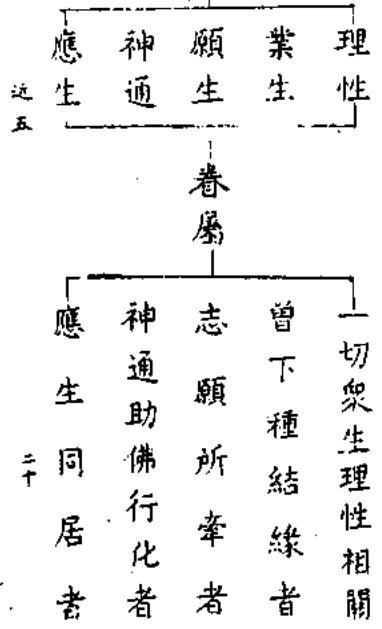 理性
業生
願生
神通
應生
近五
眷屬
一切衆生理性相關
曾下種結緣者
志願所牽者
神通助佛行化者
應生同居者
二十